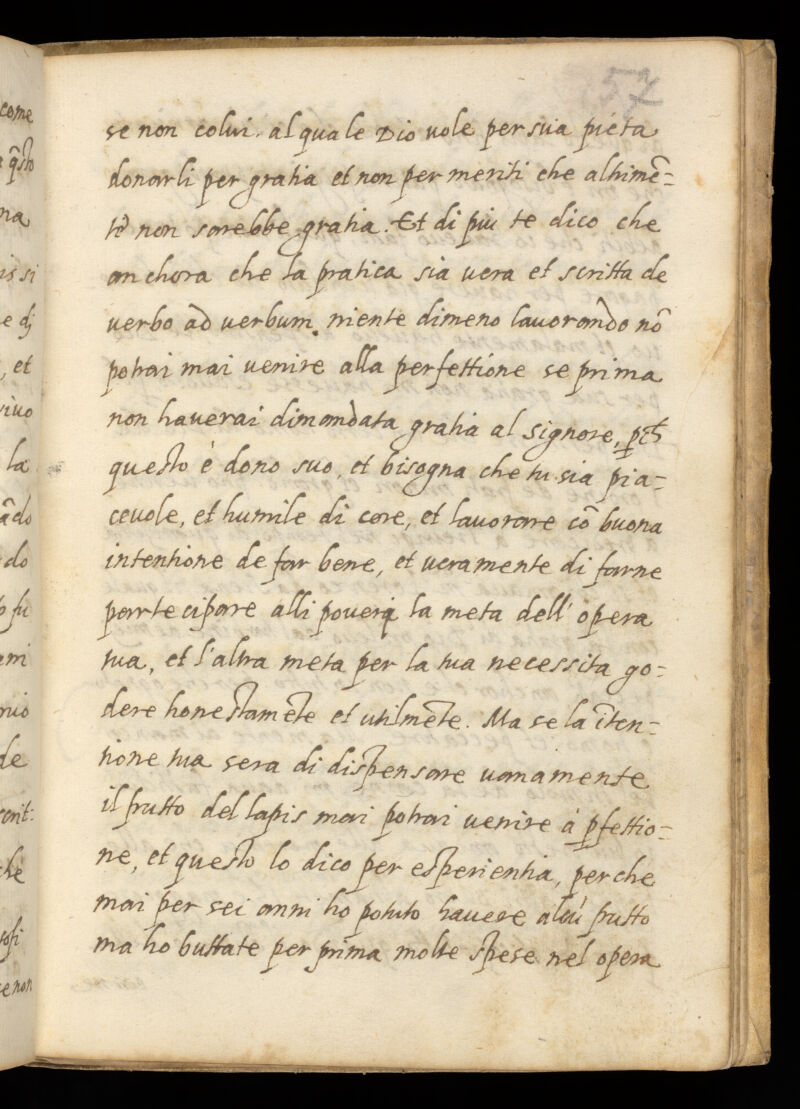 57
se non colui al quale Dio vole per sua pieta
donarli per gratia et non per meriti che altrimē=
te non sarebbe gratia. Et di piu te dico che
anchora che la pratica sia vera et scritta de
verbo ad verbum. niente dimeno lavorando nō
potrai mai venire alla perfettione se prima
non haverai dimandata gratia al signore,
questo è dono suo, et bisogna che tu sia pia=
cevole, et humile di core, et lavorare cō buona
intentione de far bene, et veramente di farne
partecipare alli poveri la meta dell'opera
tua, et l'altra meta per la tua necessita go=
dere honestamēte et utilmēte. Ma se la ītten=
tione tua sera di dispensare vanamente
il frutto del lapis mai potrai venire á pfettio=
ne, et questo lo dico per esperientia, perche
mai per sei anni ho potuto havere alcū frutto
ma ho buttate per prima molte spese nel opera
come
na
issi
e dj
, et
vivo
la
ādo
do
fu
nio
de
scrit:
che
e non